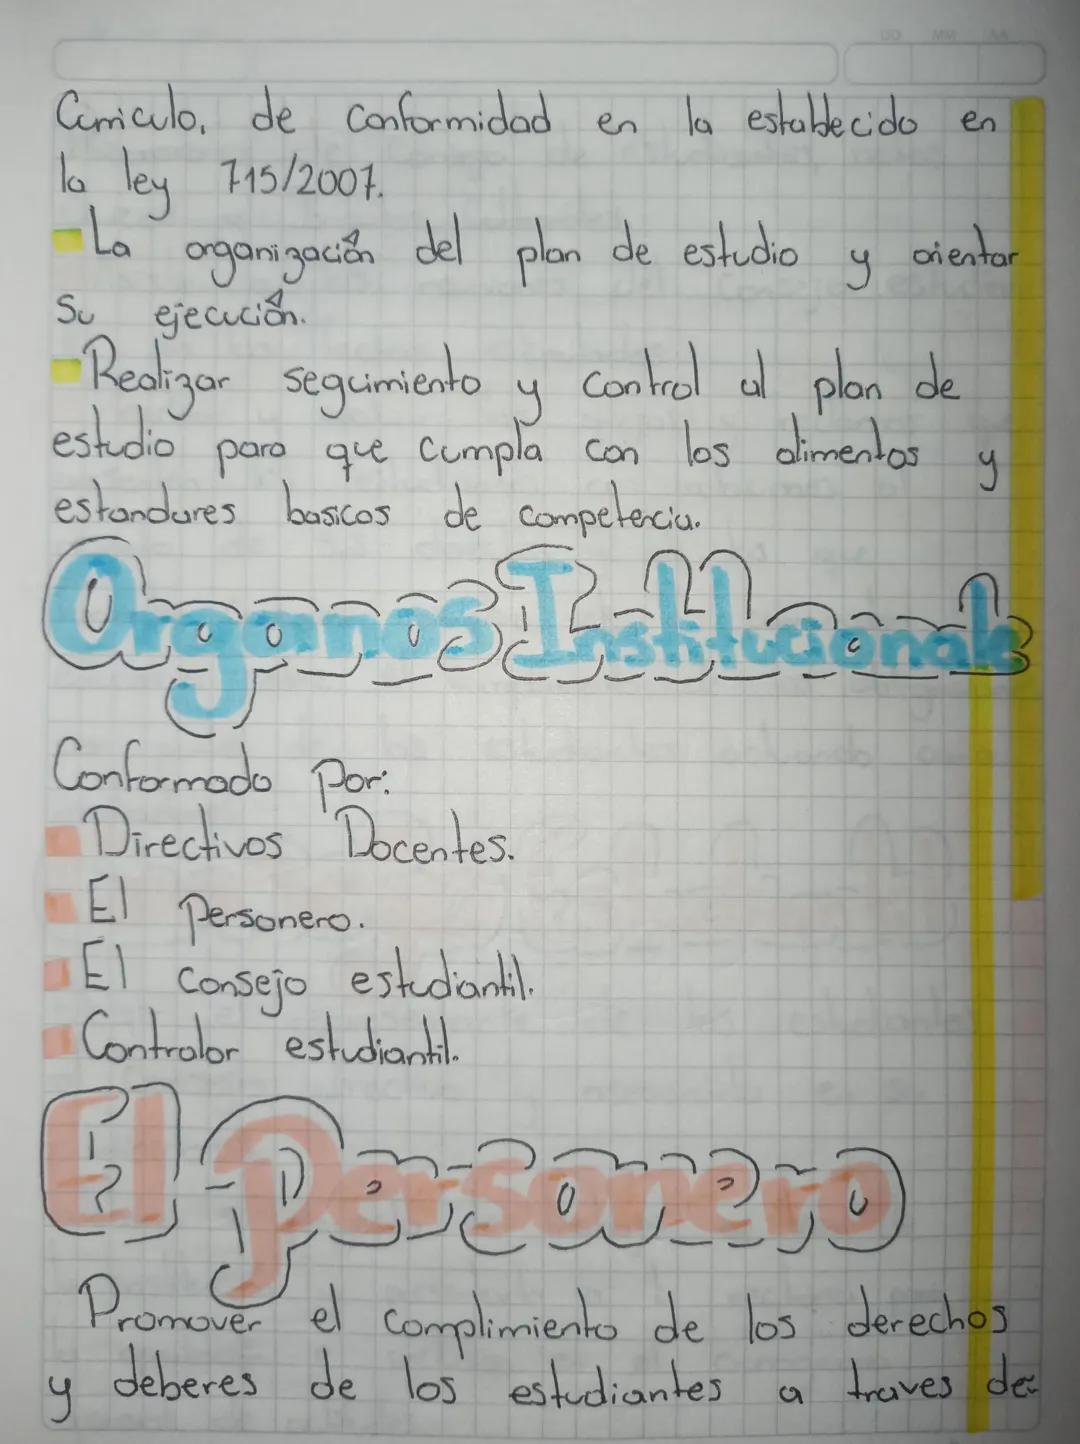 DD MM AA
Curriculo, de conformidad en la establecido en
la ley 715/2007.
La organización del plan de estudio y orientar
su ejecución.
Realizar seguimiento y control al plan de
estudio para que cumpla con los alimentos y
estandares basicos de competencia.
Organos Institucionals
Conformado por:
Directivos Docentes.
El personero.
El consejo estudiantil.
Contralor estudiantil.
El Personero
Promover el complimiento de los derechos
y deberes de los estudiantes a traves de-